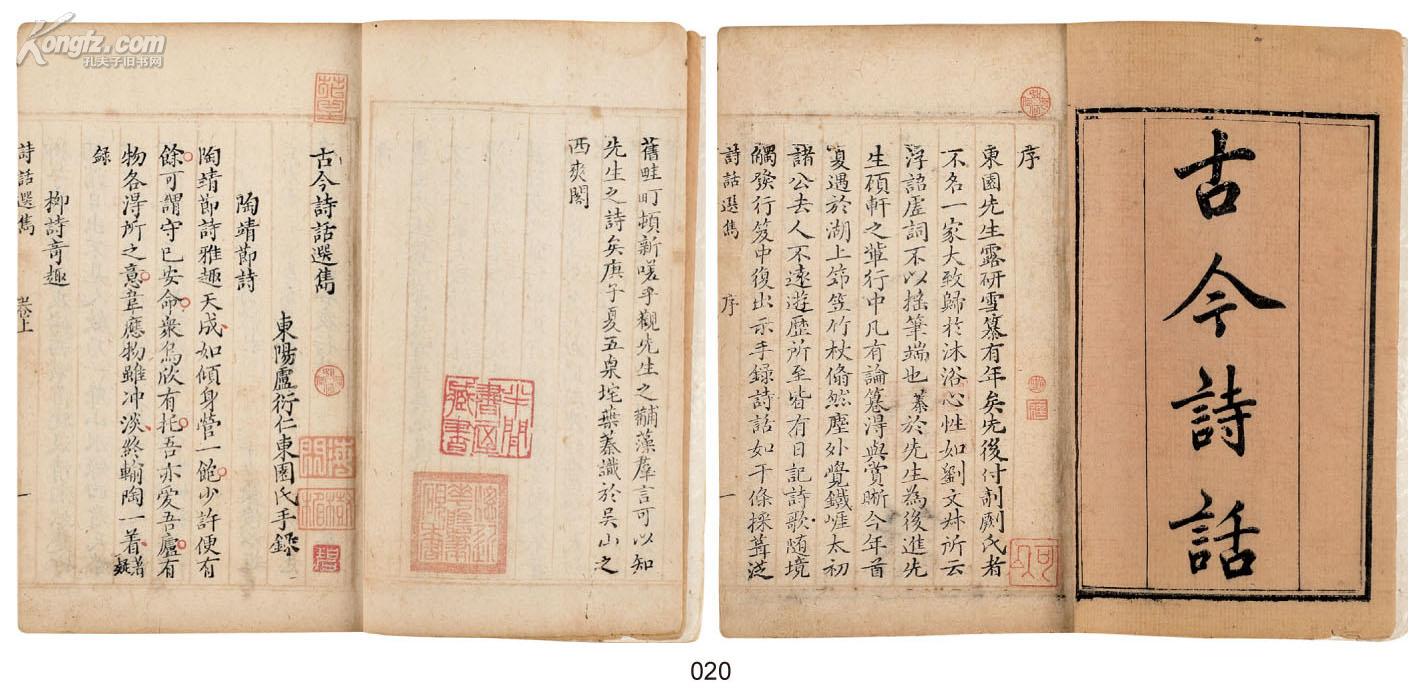 古今詩話
序
東園先生露研雪纂有年矣先後付剞劂氏者
不名一家大致歸於沐浴心性如劉文炑所云
浮詔虛詞不以擾筆端也蓁於先生為後進先
生碩軒之輩行中凡有論篹得與賞晰今年首
夏遇於湖上篛笠竹杖翛然塵外覺鐵崖太初
諸公去人不遠遊歷所至皆有日記詩歌随境
觸發行笈中復出示手録詩話如干條採葺泛
詩話選雋 序 一
舊畦町頓新嗟乎觀先生之黼藻羣言可以知
先生之詩矣庚子夏五帛垞葉蓁識於吴山之
西爽閣
半閒書屋藏書
古今詩話選雋
東陽盧衍仁東園氏手録
陶靖節詩
陶靖節詩雅趣天成如傾身營一飽少許便有
餘可謂守已安命衆鳥欣有托吾亦愛吾廬有
物各得所之意韋應物雖冲淡終輸陶一着
録
柳詩竒趣
詩話選雋 卷上 一
Kongfz.com
孔夫子旧书网
020